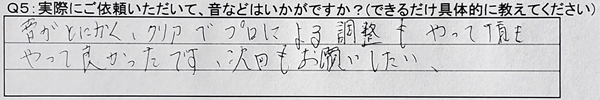 Q5:実際にご依頼いただいて、音などはいかがですか?(できるだけ具体的に教えてください)
音がとにかく、クリアでプロによる調整もやって頂き
やって良かったです、次回もお願いしたい、